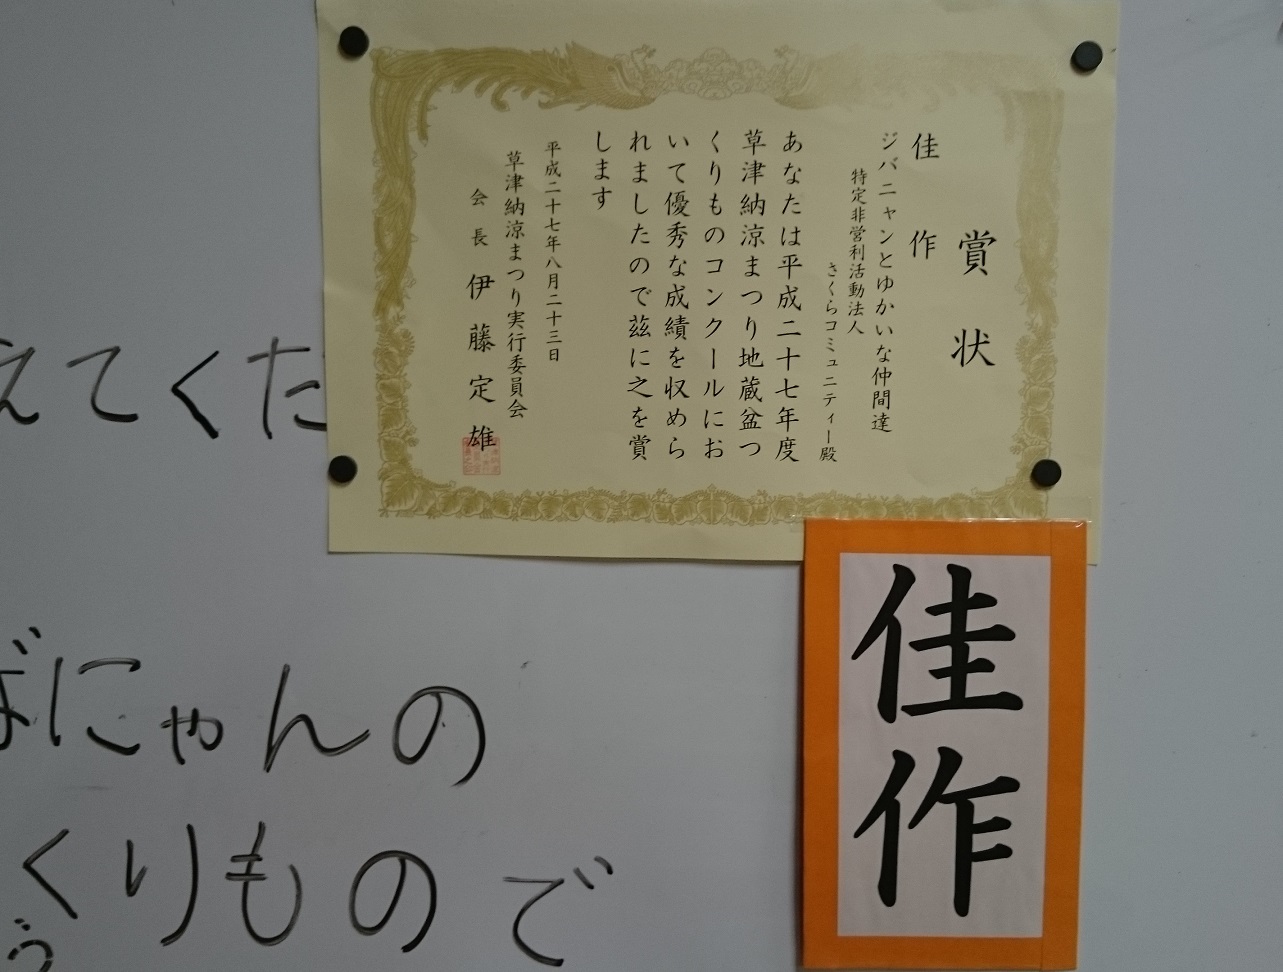 賞状
佳作
ジバニャンとゆかいな仲間達
特定非営利活動法人
さくらコミュニティー殿
あなたは平成二十七年度
草津納涼まつり地蔵盆つ
くりものコンクールにお
いて優秀な成績を収めら
れましたので茲に之を賞
します
平成二十七年八月二十三日
草津納涼まつり実行委員会
会長 伊藤定雄
佳作
えてくた
ばにゃんの
くりもので